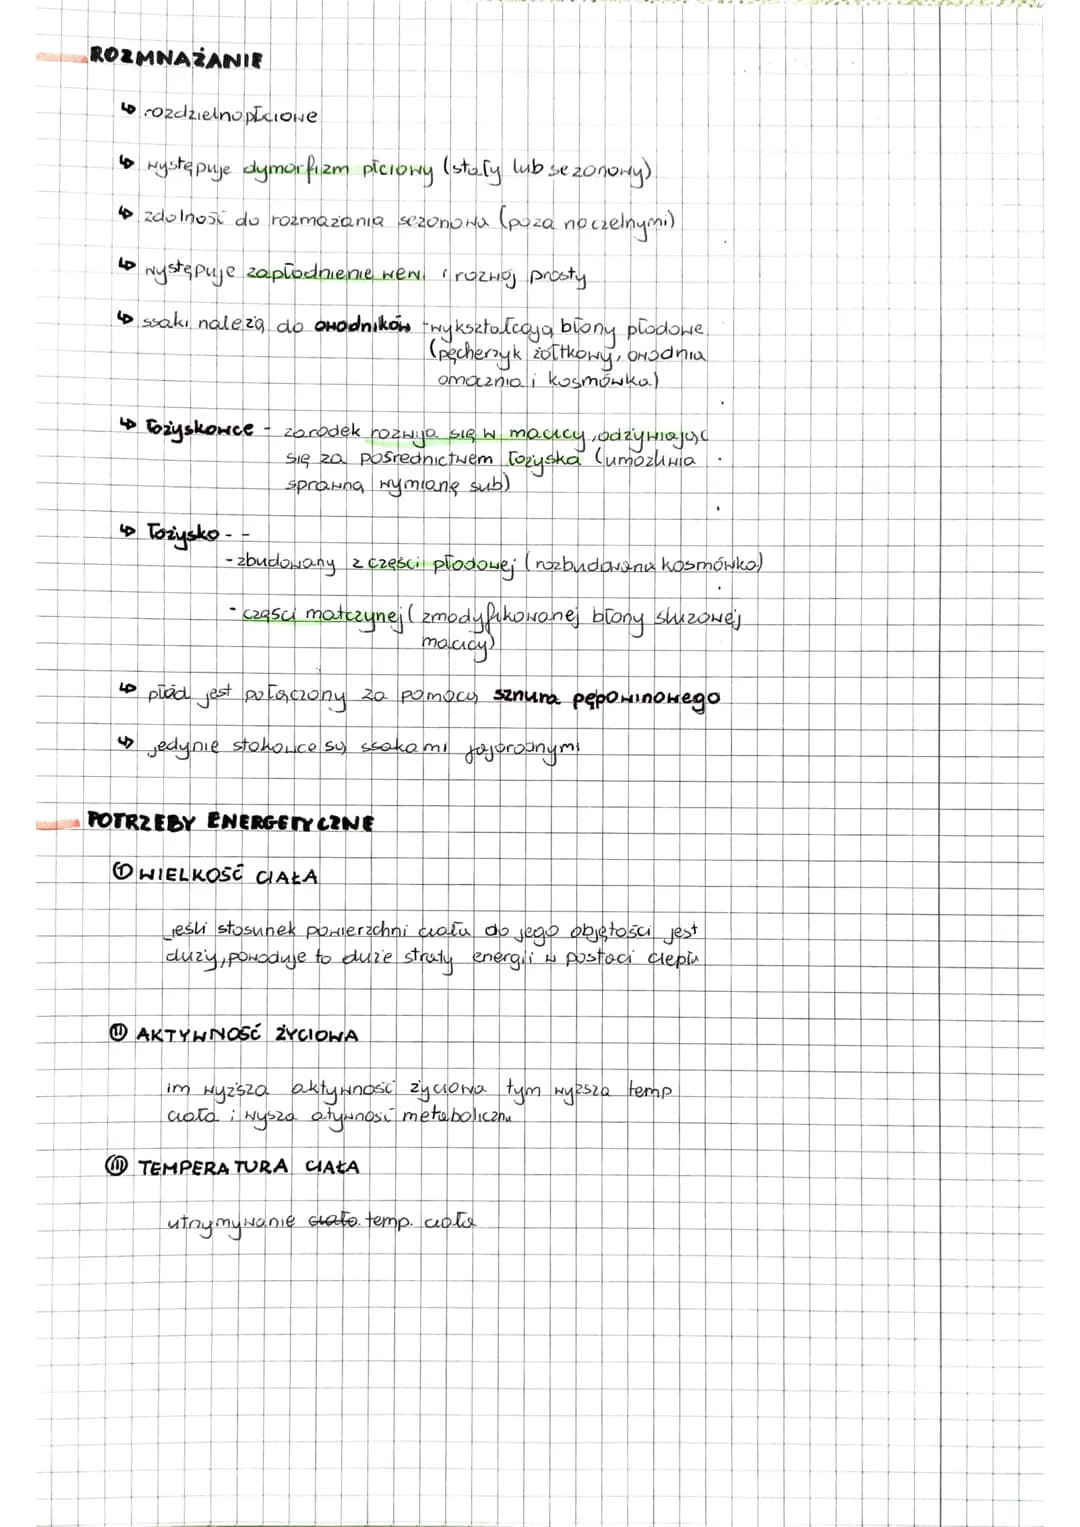 ROZMNAŻANIE
↳ rozdzielnopłciowe
↳ występuje dymorfizm płciowy (stały lub sezonowy)
↳ zdolność do rozmażania sezonowa (poza naczelnymi)
↳ występuje zapłodnienie wew. i rozwój prosty
↳ ssaki należą do owodników - wykształcają błony płodowe
(pęcherzyk żółtkowy, owodnia
omocznia i kosmówka)
↳ Łożyskowce - zarodek rozwija się w macicy, odżywiając
się za pośrednictwem łożyska (umożliwia
sprawną wymianę sub)
↳ Łożysko - -
- zbudowany z części płodowej (rozbudowana kosmówka)
- części matczynej (zmodyfikowanej błony śluzowej
macicy)
↳ płód jest połączony za pomocą sznura pępowinowego
↳ jedynie stekowce są ssakami jajorodnymi
POTRZEBY ENERGETYCZNE
Ⓘ WIELKOŚĆ CIAŁA
jeśli stosunek powierzchni ciała do jego objętości jest
duży, powoduje to duże straty energii w postaci ciepła
Ⓘ Ⓘ AKTYWNOŚĆ ŻYCIOWA
im wyższa aktywność życiowa tym wyższa temp
ciała i wysza atywność metaboliczna
Ⓘ Ⓘ Ⓘ TEMPERATURA CIAŁA
utrzymywanie ciała temp. ciała